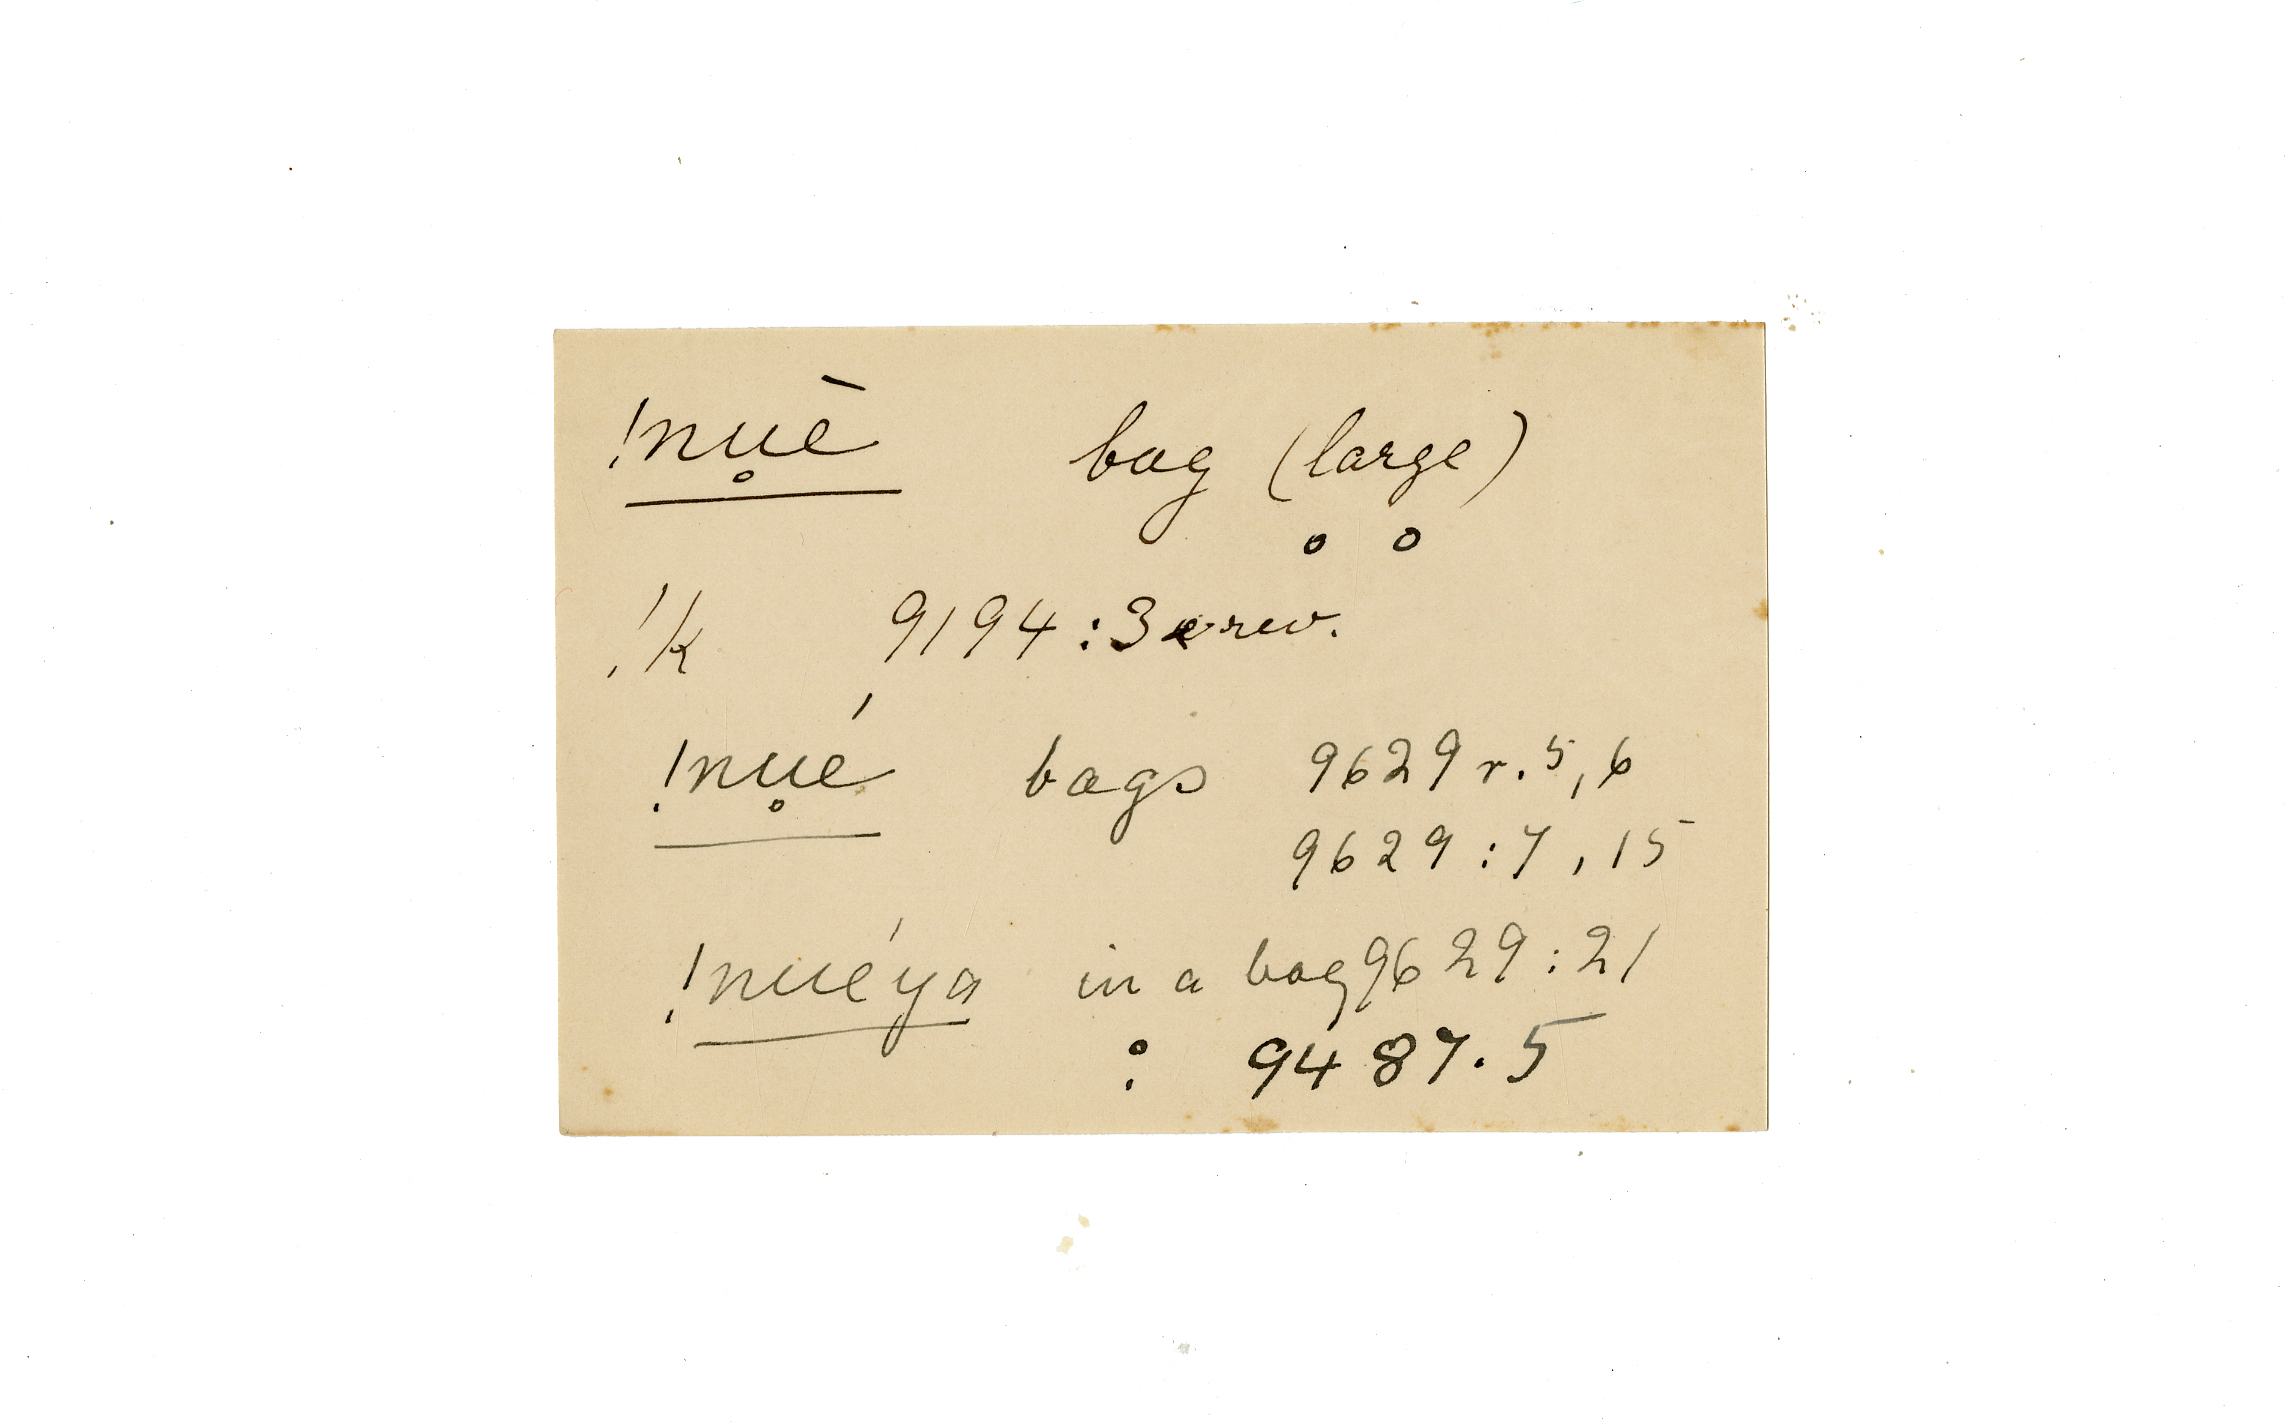 !nu̥è bag (large)
!k 9194:3 rev.
!nu̥é bags 9629 r. 5, 6
9629:7, 15
!nuéya in a bag 9629:21
: 9487.5